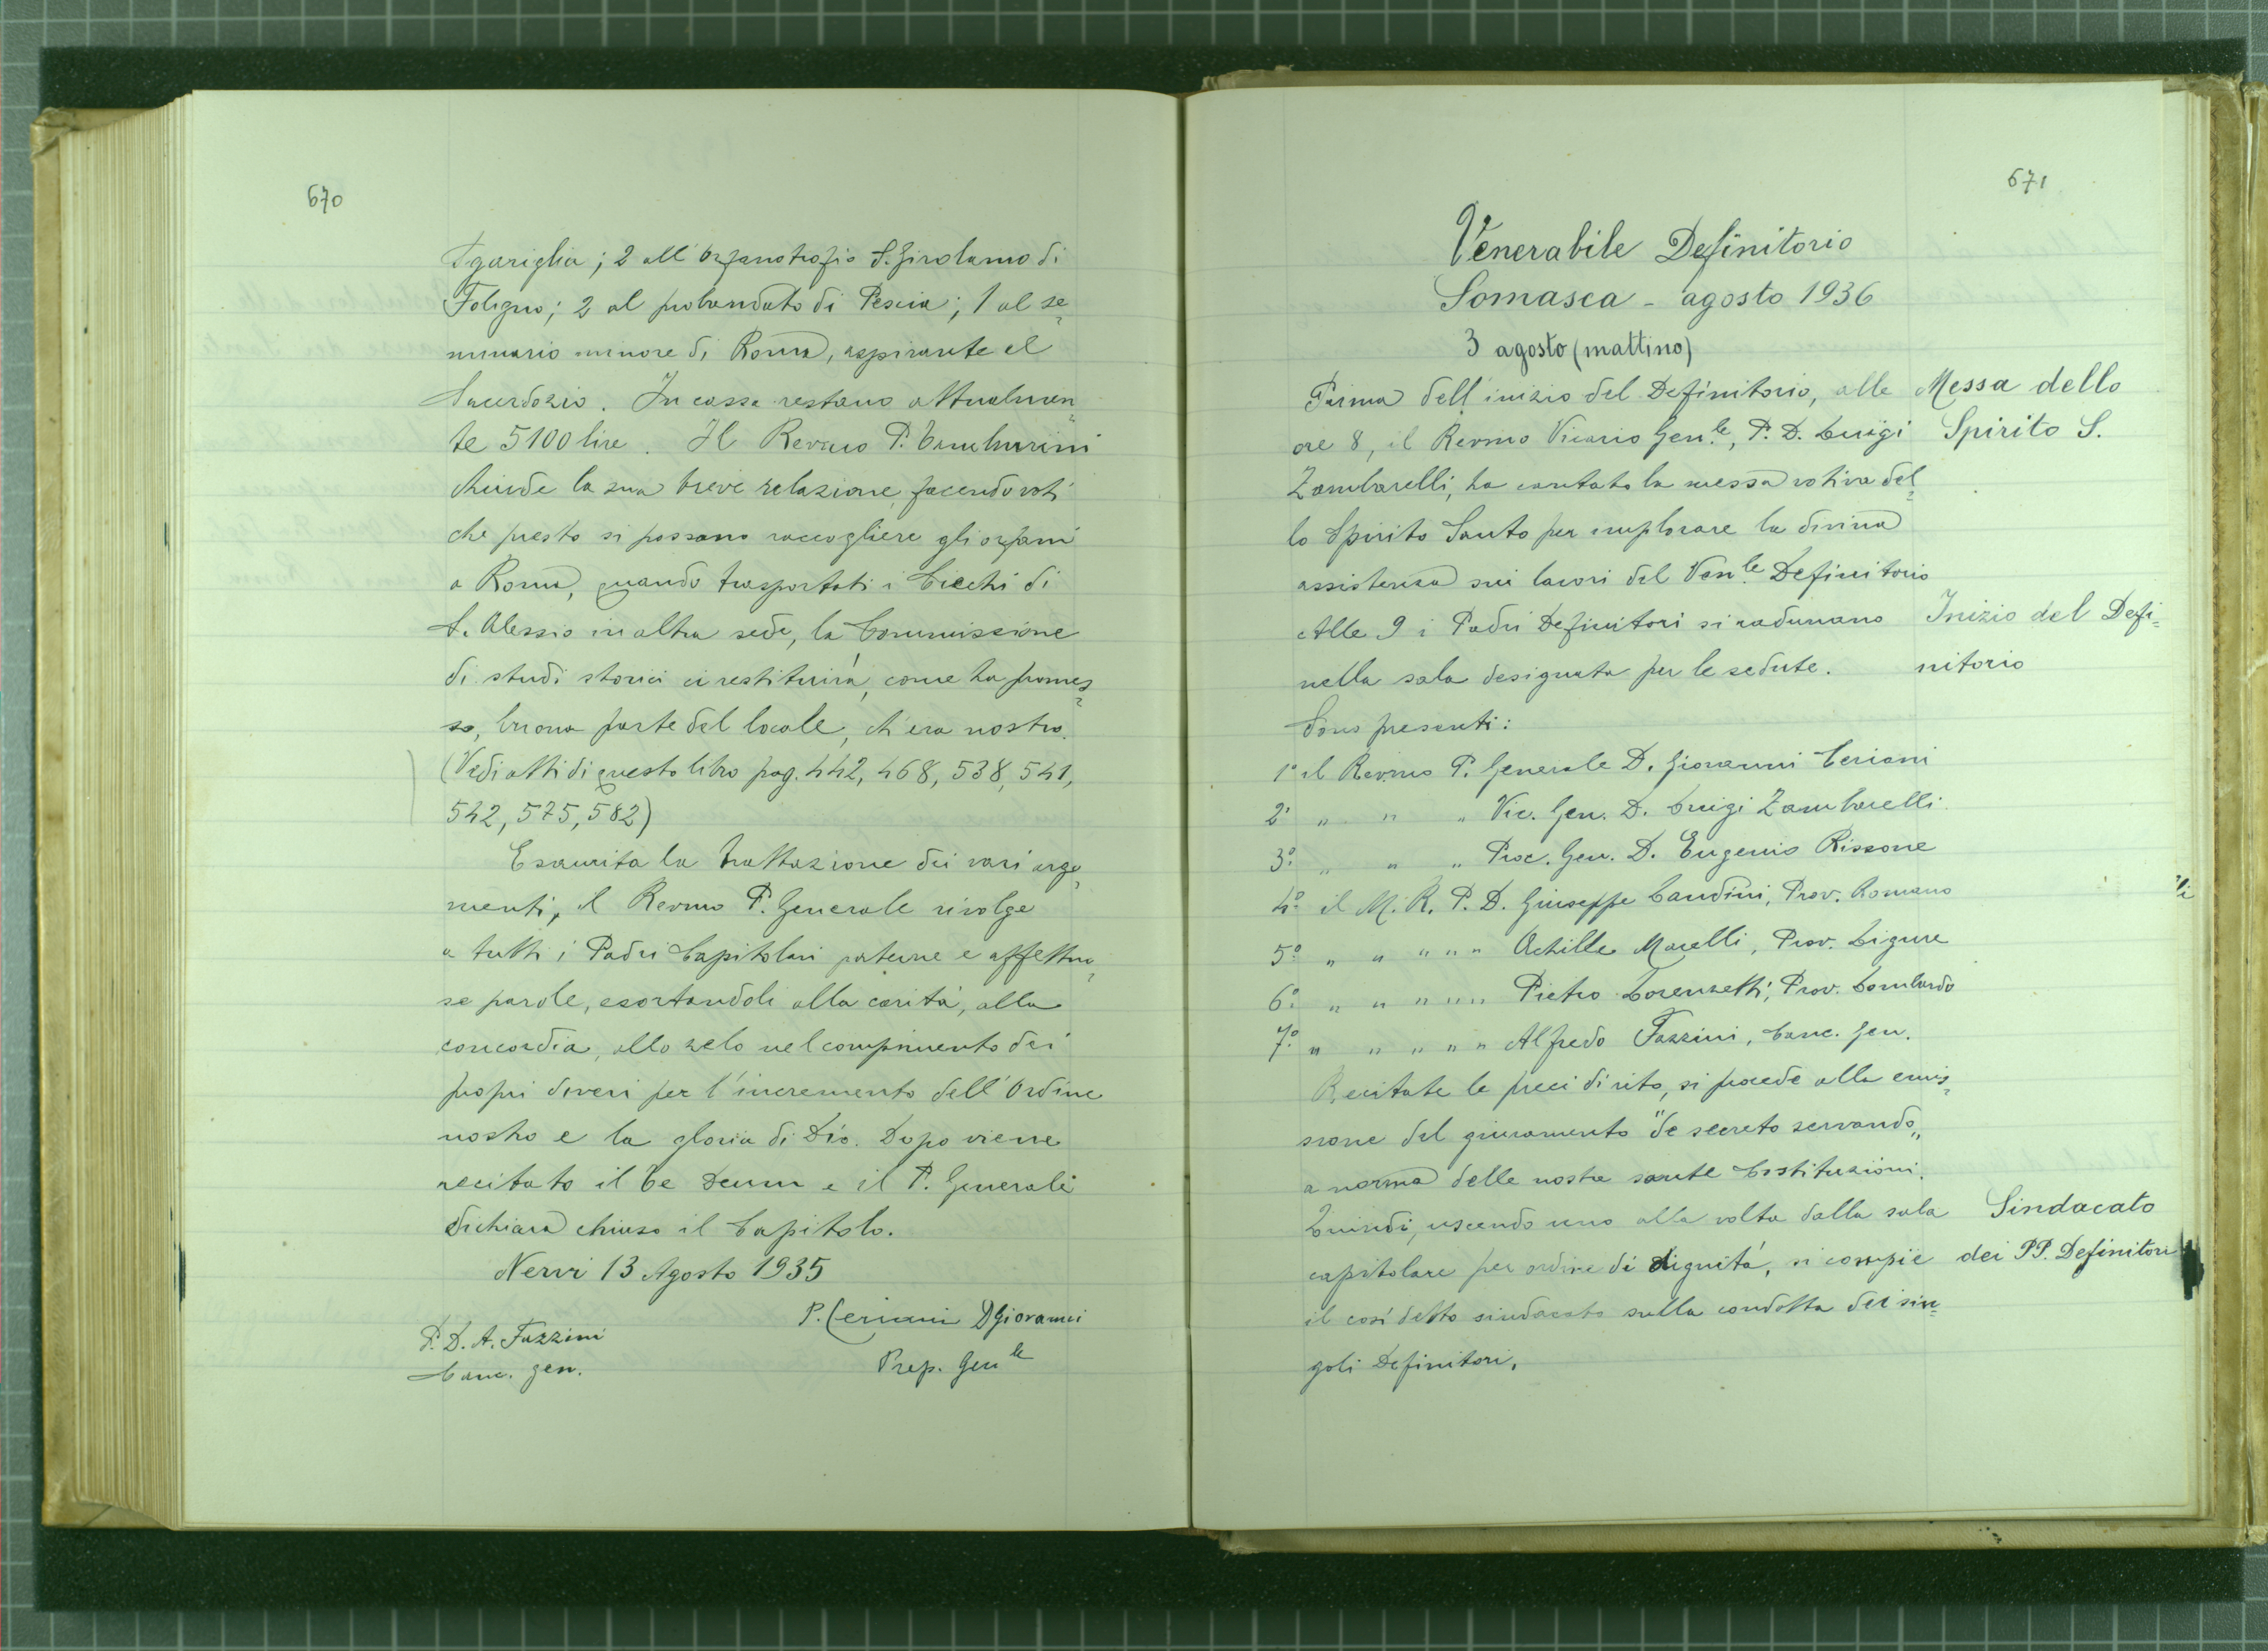 670
Sgariglia; 2 all'Orfanotrofio S. Girolamo di
Foligno; 2 al probandato di Pescia; 1 al se=
minario minore di Roma, aspirante al
Sacerdozio. In cassa restano attualmen=
te 5100 lire. Il Revmo P. Tamburini
chiude la sua breve relazione, facendo voti
che presto si possano raccogliere gli orfani
a Roma, quando trasportati i Ciechi di
S. Alessio in altra sede, la Commissione
di studi storici ci restituirà, come ha promes=
so, buona parte del locale, ch'era nostro.
(Vedi atti di questo libro pag. 442, 468, 538, 541,
542, 575, 582)
Esaurita la trattazione dei vari argo=
menti, il Revmo P. Generale rivolge
a tutti i Padri Capitolari paterne e affettuo=
se parole, esortandoli alla carità, alla
concordia, allo zelo nel compimento dei
propri doveri per l'incremento dell'Ordine
nostro e la gloria di Dio. Dopo viene
recitato il Te Deum e il P. Generale
dichiara chiuso il Capitolo.
Nervi 13 Agosto 1935
P. Ceriani D Giovanni
Prep. Genle
P. D. A. Fazzini
Canc. gen.
671
Venerabile Definitorio
Somasca - agosto 1936
3 agosto (mattino)
Prima dell'inizio del Definitorio, alle
ore 8, il Revmo Vicario Gen.le, P. D. Luigi
Zambarelli, ha cantato la messa votiva del=
lo Spirito Santo per implorare la divina
assistenza sui lavori del Ven.le Definitorio
Messa dello
Spirito S.
Alle 9 i Padri Definitori si radunano
nella sala designata per le sedute.
Inizio del Defi=
nitorio
Sono presenti:
1° il Revmo P. Generale D. Giovanni Ceriani
2° " " " Vic. Gen. D. Luigi Zambarelli
3° " " " Proc. Gen. D. Eugenio Rissone
4° il M. R. P. D. Giuseppe Landini, Prov. Romano
5° " " " " " Achille Marelli, Prov. Ligure
6° " " " " " Pietro Lorenzetti, Prov. Lombardo
7° " " " " " Alfredo Fazzini, Canc. Gen.
Recitate le preci di rito, si procede alla emis=
sione del giuramento "de secreto servando„
a norma delle nostre sante Costituzioni.
Quindi, uscendo uno alla volta dalla sala
capitolare per ordine di dignità, si compie
il così detto sindacato sulla condotta dei sin=
goli Definitori.
Sindacato
dei PP. Definitori